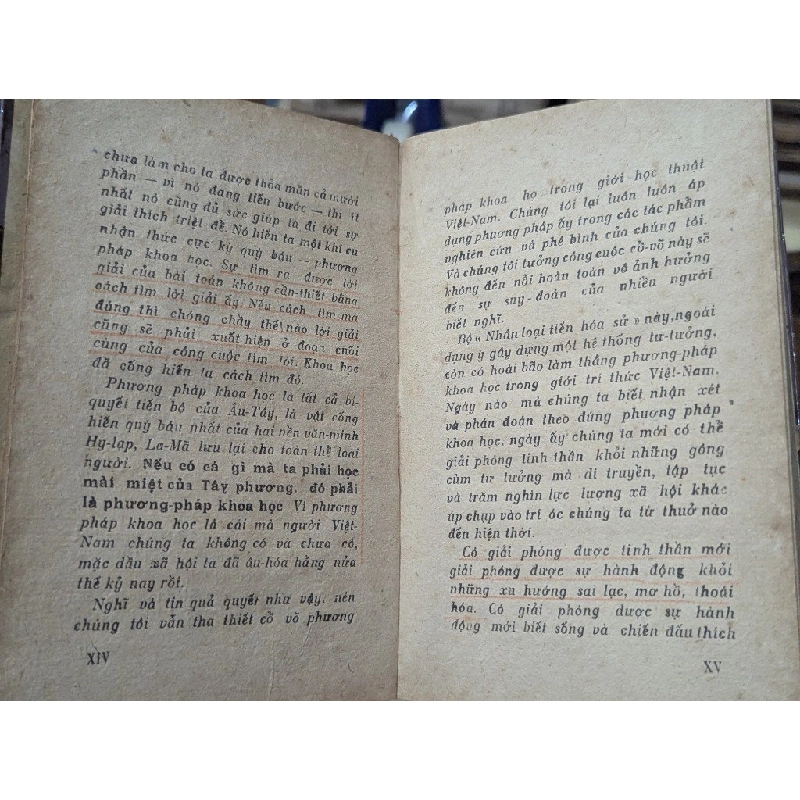 chưa làm cho ta được thỏa mãn cả mười
phần — vì nó đang tiến bước — thì ít
nhất nó cũng đủ sức giúp ta đi tới sự
giải thích triệt để. Nó hiến ta một khí cụ
nhận thức cực kỳ quý báu — phương
pháp khoa học. Sự tìm ra được lời
giải của bài toán không cần-thiết bằng
cách tìm lời giải ấy. Nếu cách tìm mà
đúng thì chóng chầy thế nào lời giải
cũng sẽ phải xuất hiện ở đoạn cuối
cùng của công cuộc tìm tòi. Khoa học
đã cống hiến ta cách tìm đó.
Phương pháp khoa học là tất cả bí-
quyết tiến bộ của Âu-Tây, là vật cống
hiến quý báu nhất của hai nền văn-minh
Hy-lạp, La-Mã lưu lại cho toàn thể loài
người. Nếu có cá gì mà ta phải học
mải miệt của Tây phương, đó phải
là phương-pháp khoa học Vì phương
pháp khoa học là cái mà người Việt-
Nam chúng ta không có và chưa có,
mặc dầu xã hội ta đã âu-hóa hằng nửa
thế kỷ nay rồi.
Nghĩ và tin quả quyết như vậy, nên
chúng tôi vẫn tha thiết cổ võ phương
XIV
pháp khoa họ trong giới học thuật
Việt-Nam. Chúng tôi lại luôn luôn áp
dụng phương pháp ấy trong các tác phẩm
nghiên cứu và phê bình của chúng tôi.
Và chúng tôi tưởng công cuộc cổ-võ này sẽ
không đến nỗi hoàn toàn vô ảnh hưởng
đến sự suy-đoán của nhiều người
biết nghĩ.
Bộ « Nhân loại tiến hóa sử » này, ngoài
dụng ý gây dựng một hệ thống tư-tưởng,
còn có hoài bão làm thắng phương-pháp
khoa học trong giới trí thức Việt-Nam.
Ngày nào mà chúng ta biết nhận xét
và phán đoán theo đúng phương pháp
khoa học, ngày ấy chúng ta mới có thể
giải phóng tinh thần khỏi những gông
cùm tư tưởng mà di truyền, tập tục
và trăm nghìn lực lượng xã hội khác
úp chụp vào trí óc chúng ta từ thuở nào
đến hiện thời.
Có giải phóng được tinh thần mới
giải phóng được sự hành động khỏi
những xu hướng sai lạc, mơ hồ, thoái
hóa. Có giải phóng được sự hành
động mới biết sống và chiến đấu thích
XV